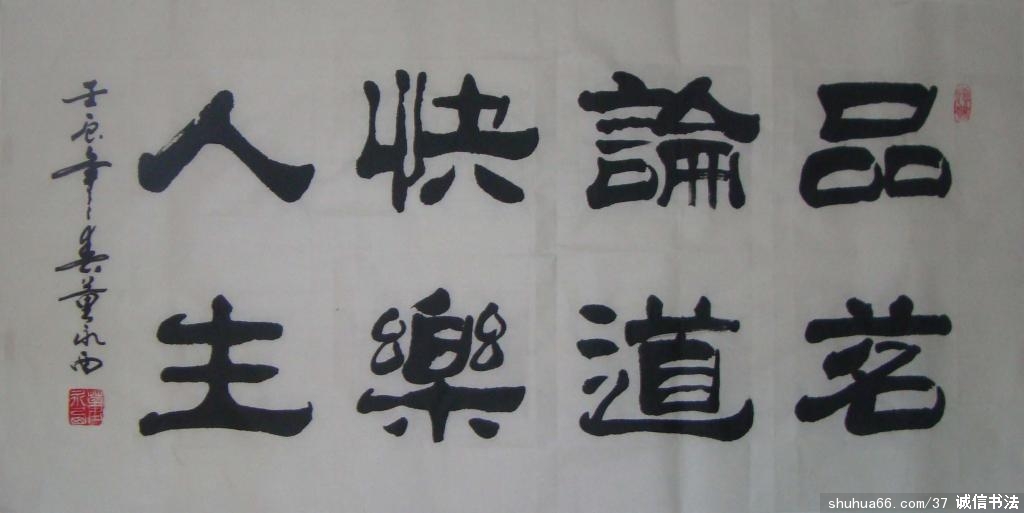 品茗
論道
快樂
人生
壬辰年春董永西
shuhua66.com/37 诚信书法